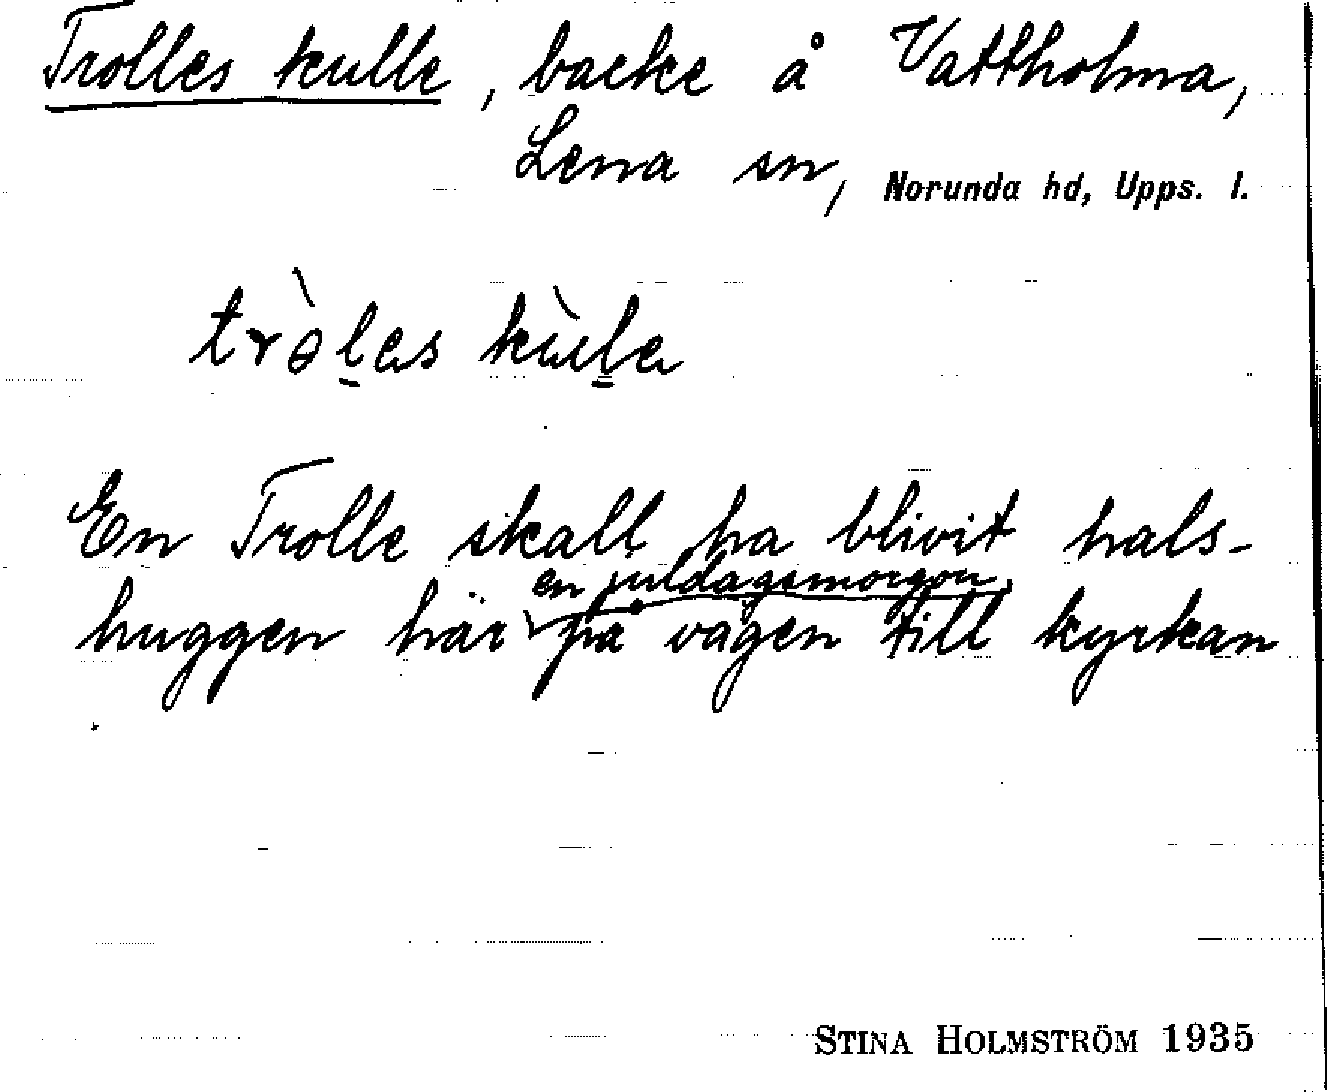 Trolles kulle, backe å Vattholma,
Lena sn, Norunda hd, Upps. l.
tròles kùle
En Trolle skall ha blivit hals-
en juldagsmorgon
huggen här på vägen till kyrkan
STINA HOLMSTRÖM 1935